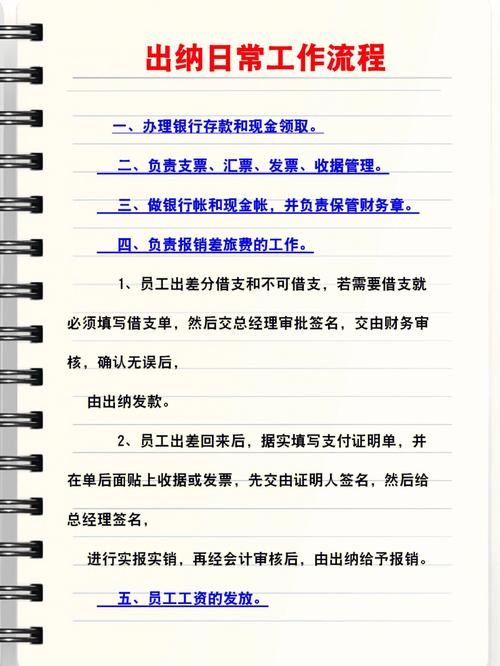 出纳日常工作流程
一、办理银行存款和现金领取。
二、负责支票、汇票、发票、收据管理。
三、做银行帐和现金帐，并负责保管财务章。
四、负责报销差旅费的工作。
1、员工出差分借支和不可借支，若需要借支就
必须填写借支单，然后交总经理审批签名，交由财务审
核，确认无误后，
由出纳发款。
2、员工出差回来后，据实填写支付证明单，并
在单后面贴上收据或发票，先交由证明人签名，然后给
总经理签名，
进行实报实销，再经会计审核后，由出纳给予报销。
五、员工工资的发放。